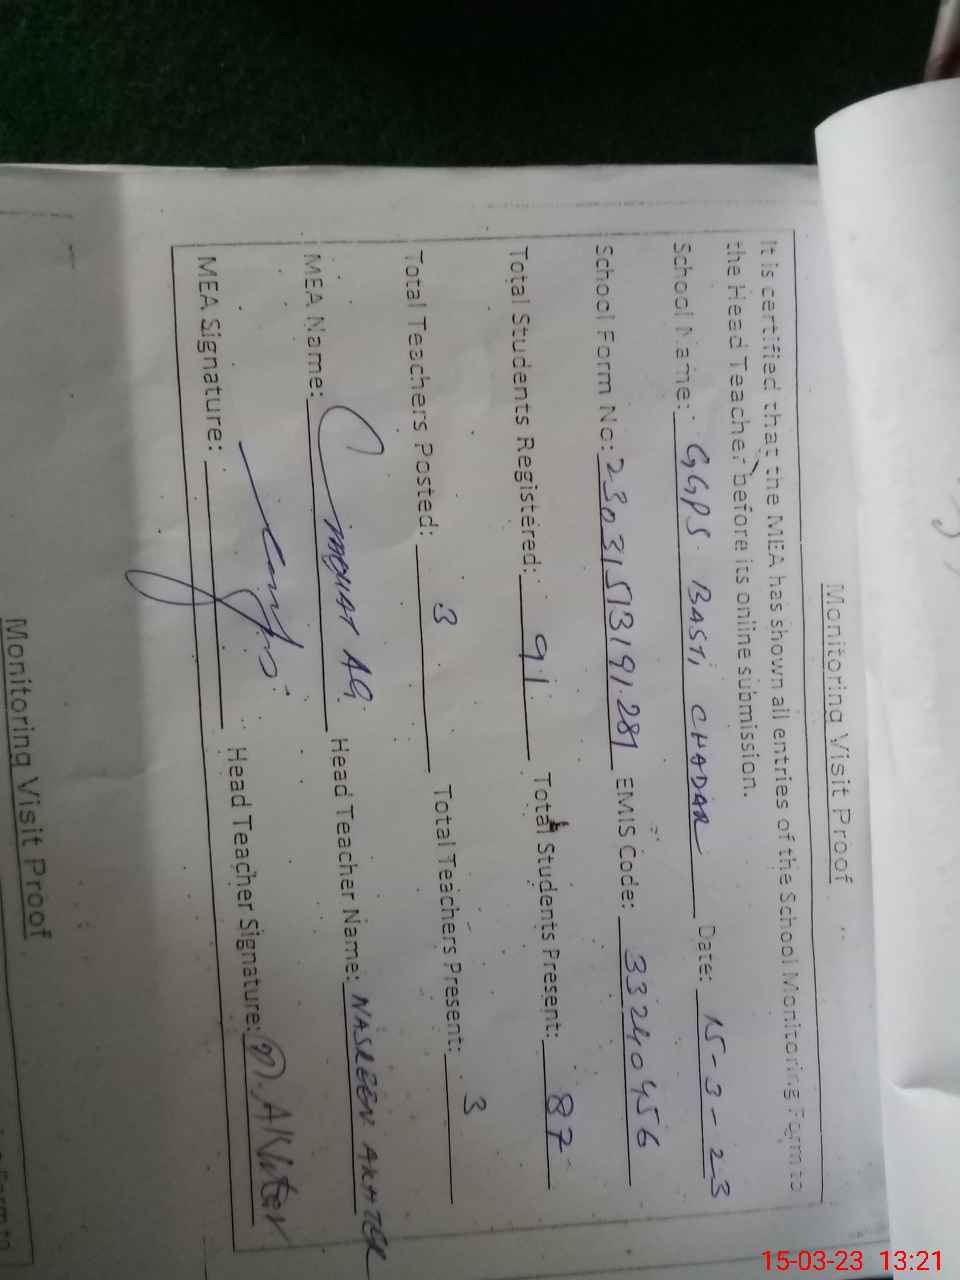 Monitoring Visit Proof
It is certified that the MEA has shown all entries of the School Monitoring Form to
the Head Teacher before its online submission.
School Name: GGPS BASTI CHADAR Date: 15-3-23
School Form No: 23031513191281 EMIS Code: 33240456
Total Students Registered: 91 Total Students Present: 87
Total Teachers Posted: 3 Total Teachers Present: 3
MEA Name: Head Teacher Name: NASREEN AKHTER
MEA Signature: Head Teacher Signature: N. Akhter
Monitoring Visit Proof
15-03-23 13:21